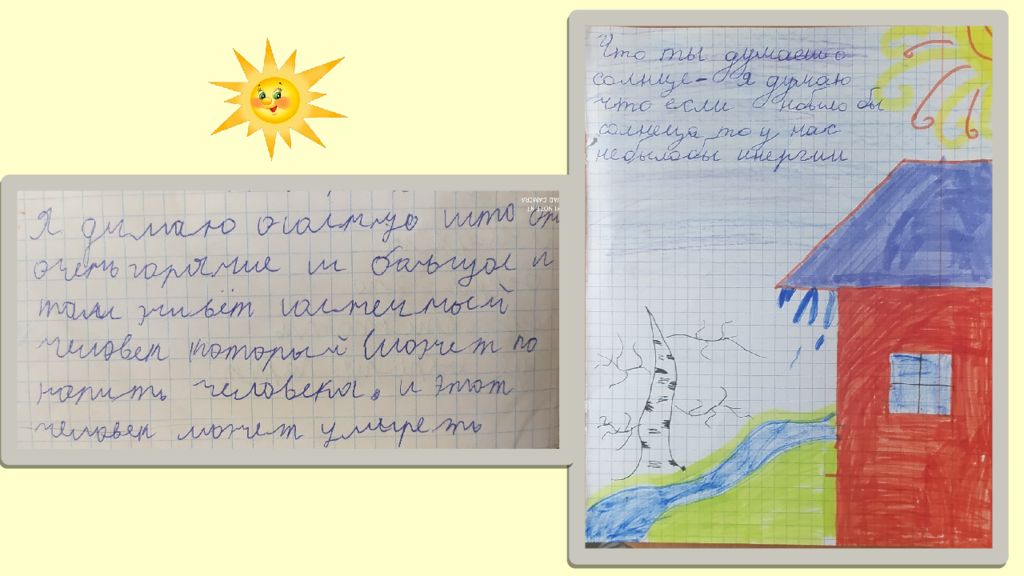 Я думаю что
очень горячие и
там живёт
человек который может по
человека. и этот
человек может умыреть
Что ты думаешь о
солнце - я думаю
что если небыло бы
солнеца то у нас
небылобы инергии